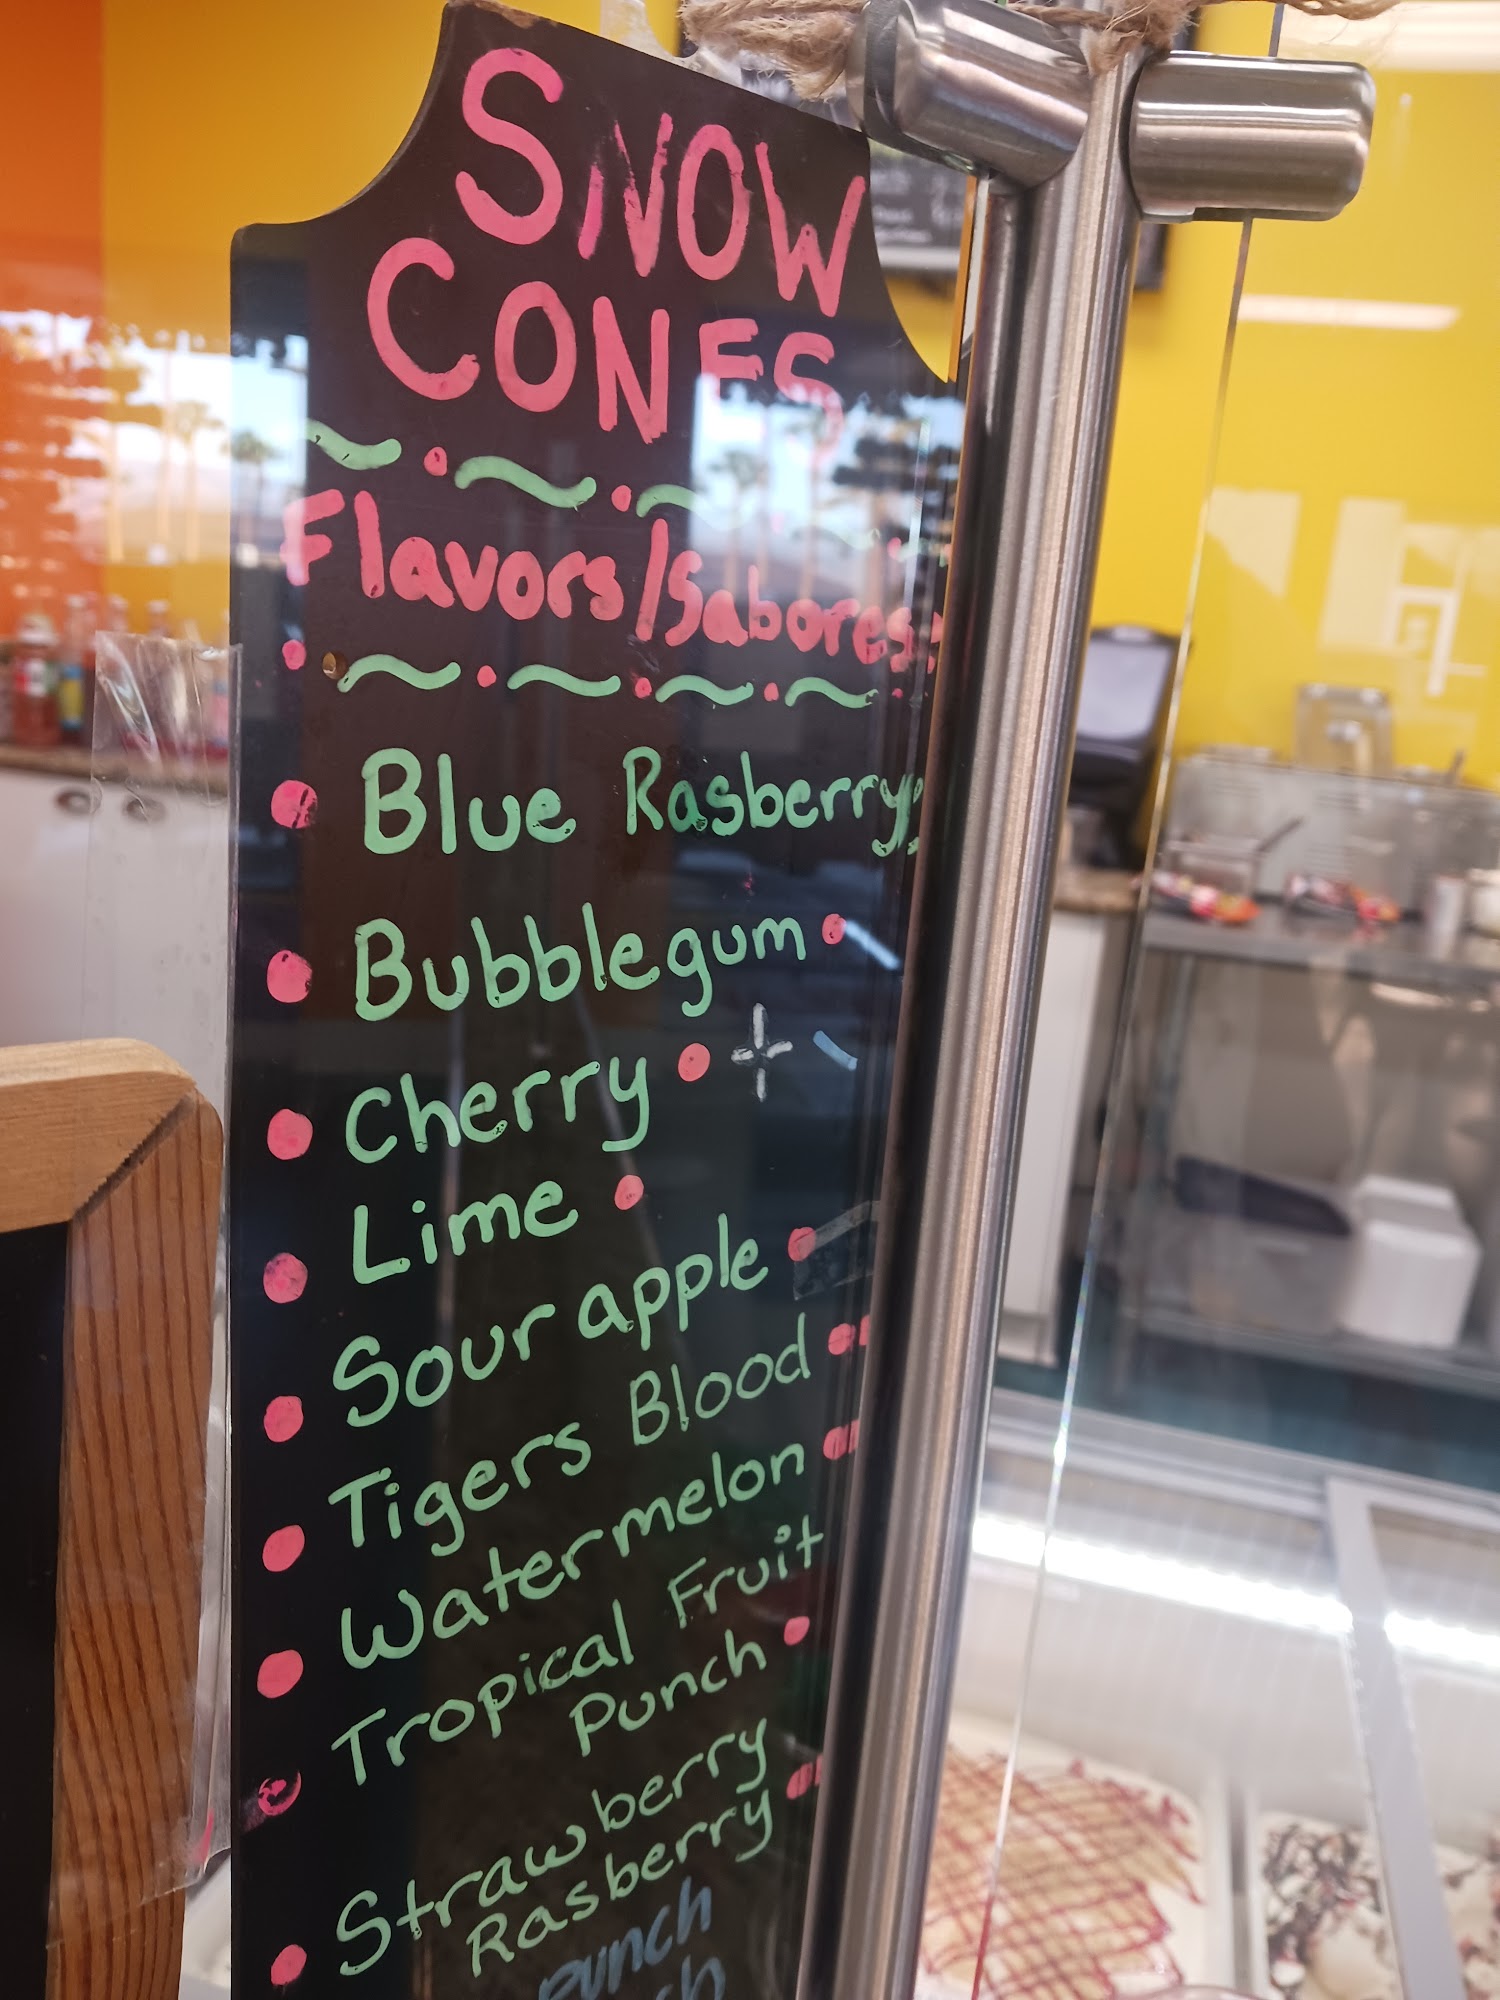 SNOW
CONES
Flavors/Sabores:
Blue Rasberry
Bubblegum
Cherry
Lime
Sour apple
Tigers Blood
Watermelon
Tropical Fruit
Punch
Strawberry
Rasberry
punch